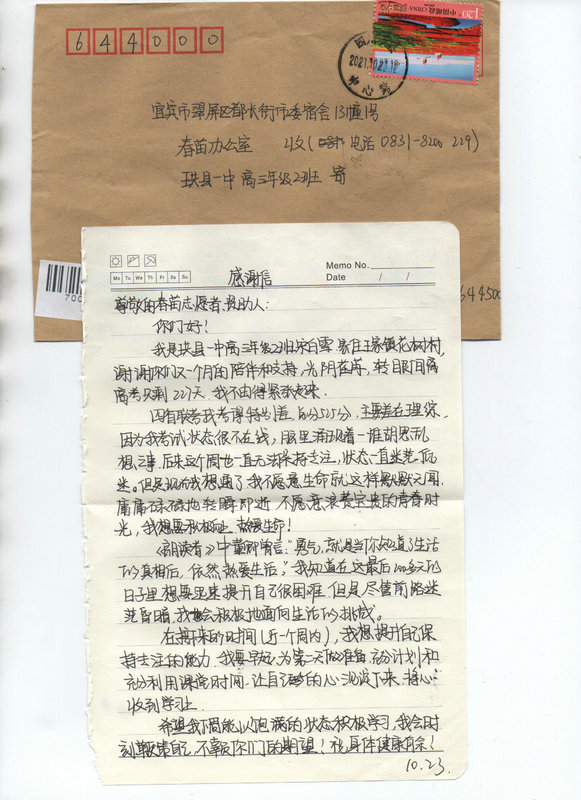 644000
1.20元
中国邮政 CHINA
2021.10.23.12
中心
宜宾市翠屏区都长街市委宿舍13幢1号
春苗办公室 收(电话 0831-8200 229)
珙县一中高三年级2班 寄
644500
700
Memo No.
Mo Tu We Th Fr Sa Su
Date / /
感谢信
尊敬的春苗志愿者、资助人:
你们好!
我是珙县一中高三年级2班宋白雪,家住王家镇花树村,
谢谢你们又一个月的陪伴和支持,光阴荏苒,转眼间离
高考只剩227天,我不由得紧张起来.
四省联考我考得特别差,总分525分,主要差在理综.
因为我考试状态很不在线,脑里涌现着一堆胡思乱
想之事,后来这个周也一直无法保持专注,状态一直迷茫、低
迷。但是现在我想通了,我不愿意生命就这样默默无闻.
庸庸碌碌地轻瞬即逝,不愿意浪费宝贵的青春时
光,我想要积极向上,热爱生命!
《朗读者》中董卿曾言:"勇气,就是当你知道了生活
的真相后,依然热爱生活。"我知道在这最后200多天的
日子里想要迅速提升自己很困难,但是,尽管前路迷
茫昏暗,我也会积极地面向生活的挑战。
在接下来的时间(近一个周内),我想提升自己保
持专注的能力,我要早起,为第二天做准备,充分计划和
充分利用课堂时间,让自己的心沉淀下来,将心
收到学习上.
希望我下周能以饱满的状态积极学习,我会时
刻鞭策自己,不辜负你们的期望!祝身体健康有余!
10.23.